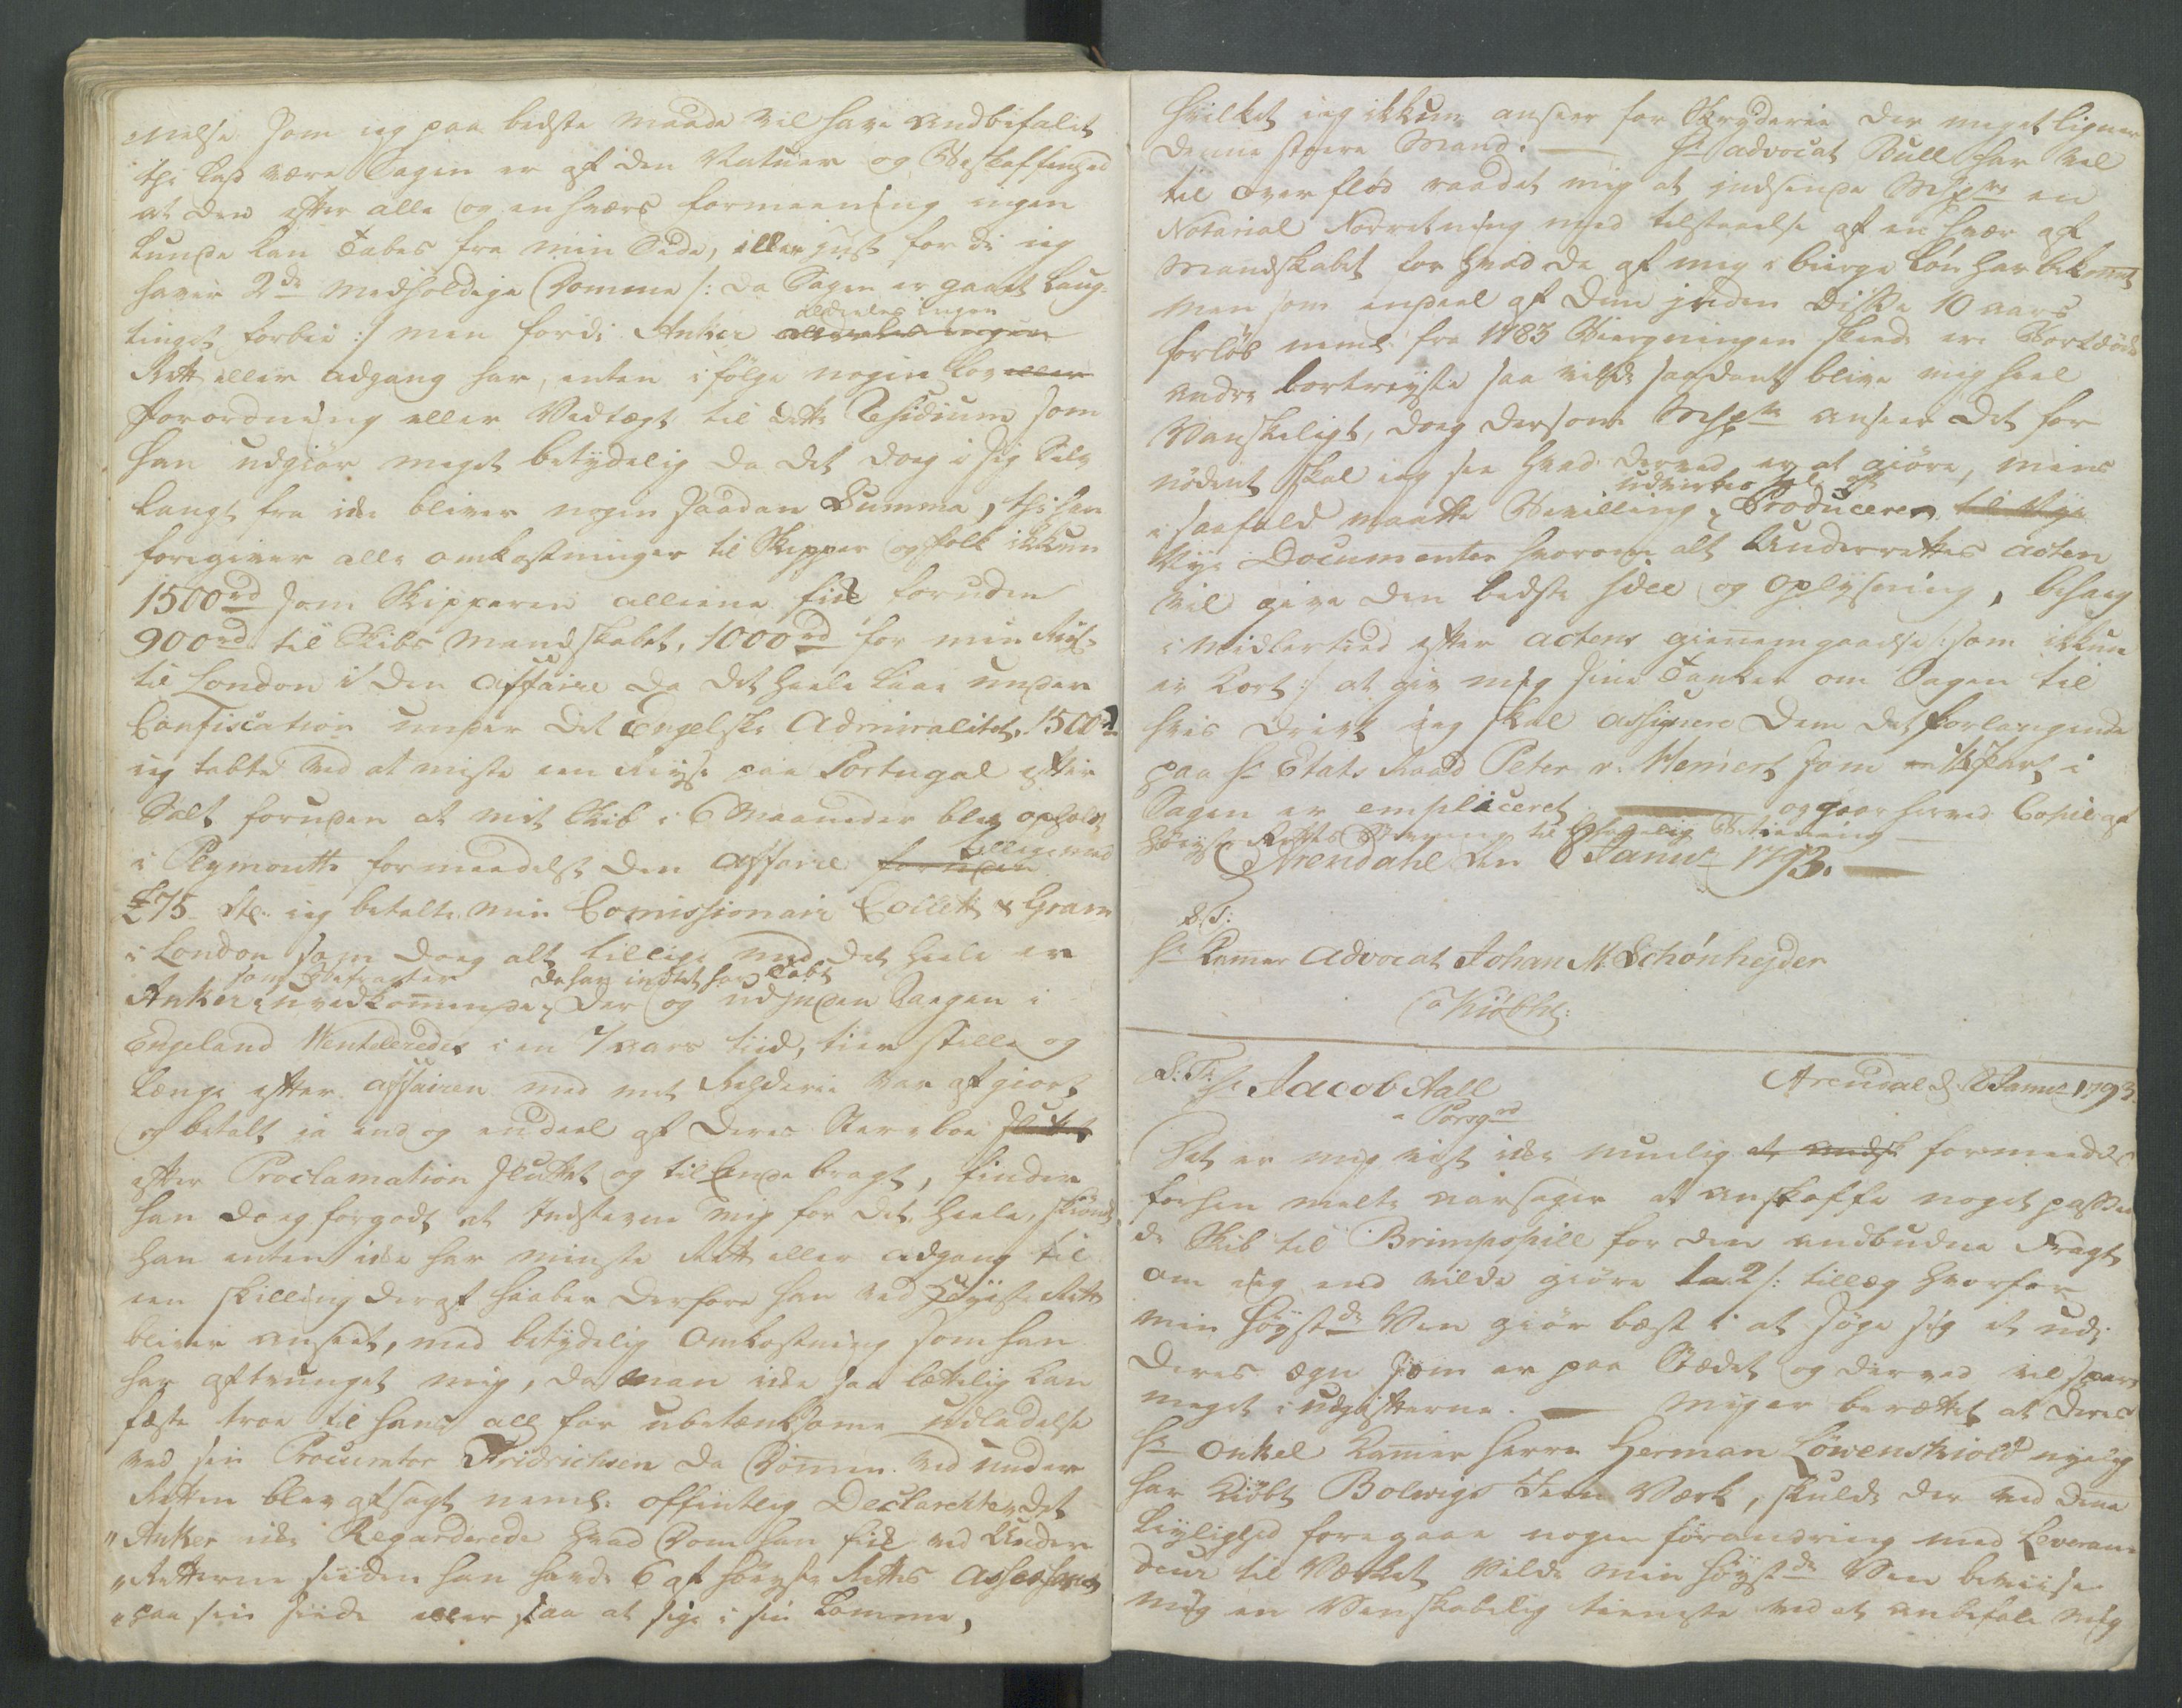 melse som jeg paa bedste maade vil have andbefalet
thi Lad være Sagen er af den Natuer og Beskaffenhed
at den efter alle og enhvers formeening ingen
lunde kan tabes fra min Side, eller just fordi jeg
haver 2de medholdige Domme /: da Sagen er gaaet Laug-
tinget forbie :/ men fordi Anker aldeeles ingen
aldeeles ingen
Rett eller adgang har, enten i følge nogen Lov eller
Forordning eller Vedtægt til dette Residium som
han udgiør meget betydelig da det dog i sig Selv
langt fra icke bliver nogen saadan Summa, thi han
foregiver alle omkostninger til Skipper og folk ikkun
1500rd som Skipperen alleene fik foruden
900rd til Skibs Mandskabet, 1000rd for min Reise
til London i den affaire da det heele laae under
Confiscation under det Engelske Admiralitet, 1500rd
jeg tabte ved at miste een Reyse paa Portugal efter
Salt foruden at mit Skib i 6 Maaneder blev opholdt
i Plymouth formedelst den affaire for uden tillige med
£75 Stl. jeg betalte min Comissionair Collett & Gram
i London som dog alt tillige med det heele er
som Befragter da han indtet har tabt
Anker uvedkommende, der og uden Sagen i
Engeland Ventilerede i en 7 aars tiid, tier stille og
længe efter affairen med mit Rederie var afgiort
og betalt ja end og endeel af deres Sterboe sluttet
efter Proclamation sluttet og til Ende bragt, finder
han dog forgodt at Indstevne mig for det heele, skiønt
han enten icke har minste Rett eller adgang til
een skilling deraf haaber derfore han ved Høyeste Rett
bliver anseet, med betydelig Omkostning som han
har aftvunget mig, da man icke saa lættelig kan
fæste troe til hans alt for ubetænksomme udladelse
ved sin Procurator Fridrichsen da Dommen ved under
Retten blev afsagt neml: offentlig Declarerte, det
"Anker icke Regarderede hvad Dom han fik ved Under
"Retterne siden han havde 6 af høyeste Retts Assessorer
"paa sin side eller saa at sige i sin Lomme,
hvilket jeg ikkun anseer for Skryderie der meget ligner
denne store Mand. — Hr Advocat Bull har vel
til overflød raadet mig at indsende en
Notarial Nodretning med tilstaaelse af en hver af
Mandskabet for hvad de af mig i bierge Løn har bekommet
men som endeel af dem i den Disse 10 aars
forløb neml fra 1783 Biergningen skeede er Bortdøde
andre bortreyste saa vilde saadant blive mig heel
Vanskeligt, dog dersom anseer det for
nødent skal jeg see hvad derved er at giøre, mens
udvirkes til at
i saafald maatte Bevilling Producere til Nye
Nye Documenter hvorom alt Underrettes acten
vil give den bedste idee og Oplysning, behag
imidlertied efter actens giennemgaaelse /: som ikkun
er kort :/ at giv mig sine Tanker om Sagen til
hvis Drivt jeg skal assignere dem det forlangende
paa Hr Etats Raad Peter v. Hemert som Part i
Sagen er empliceret — og gaaer herved Copie af
Høyeste Retts Stevning til behagelig Betiening —
Arendahl den 8 Janur 1793. —
S. T:
Hr Kamer Advocat Johan M. Schønheyder
a Kiøbhl:
S. T: Hr Jacob Aall Arendal d. 8 Janur 1793.
a Porsgrd
Det er mig vist icke muelig at andsk formeedelst
forhen melte aarsager at anskaffe noget passen
de Skib til Brimpspill for den andbudne Fragt
om jeg end vilde giøre 1 a 2 /: tillæg hvorfor
min høystde Ven giør best i at søge sig et udi
deres egn som er paa Stædet og derved vil spare
meget i udgifterne. — Mig er berættet at deres
Hr Onkel Kamer Herre Herman Löwenskiold nyelig
har Kiøbt Bolvigs Jern Værk, skulde der ved denne
Leylighed foregaae nogen forandring med Leveran
deur til Værket vilde min høystde Ven beviise
mig en Venskabelig tieneste ved at anbefale mig